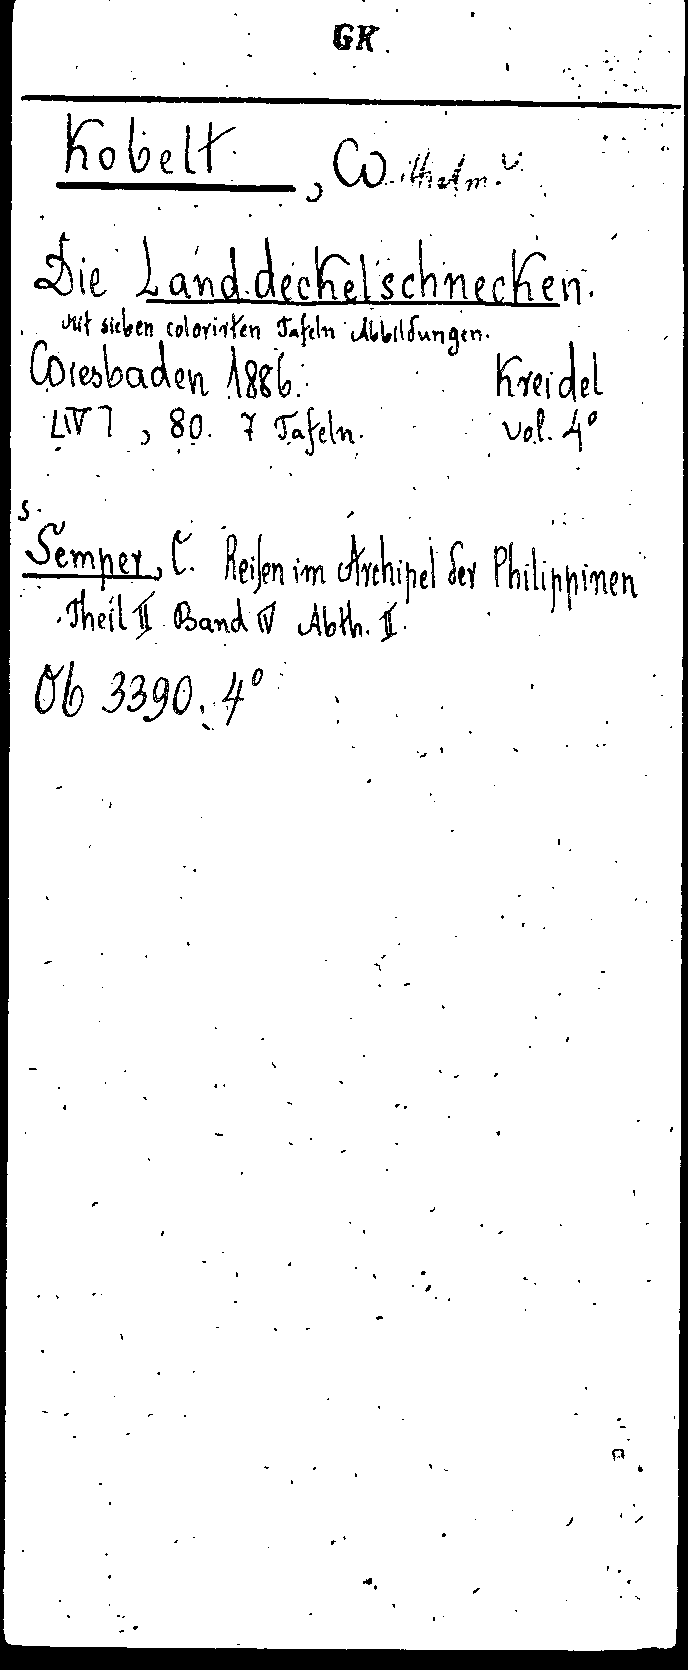 GK.
Kobelt, Wilhelm.
Die Landdeckelschnecken.
Mit sieben colorirten Tafeln Abbildungen.
Wiesbaden 1886. Kreidel
80. 7 Tafeln. vol. 4°
s.
Semper, C. Reisen im Archipel der Philippinen
Theil II Band IV Abth. II.
Ob 3390. 4°